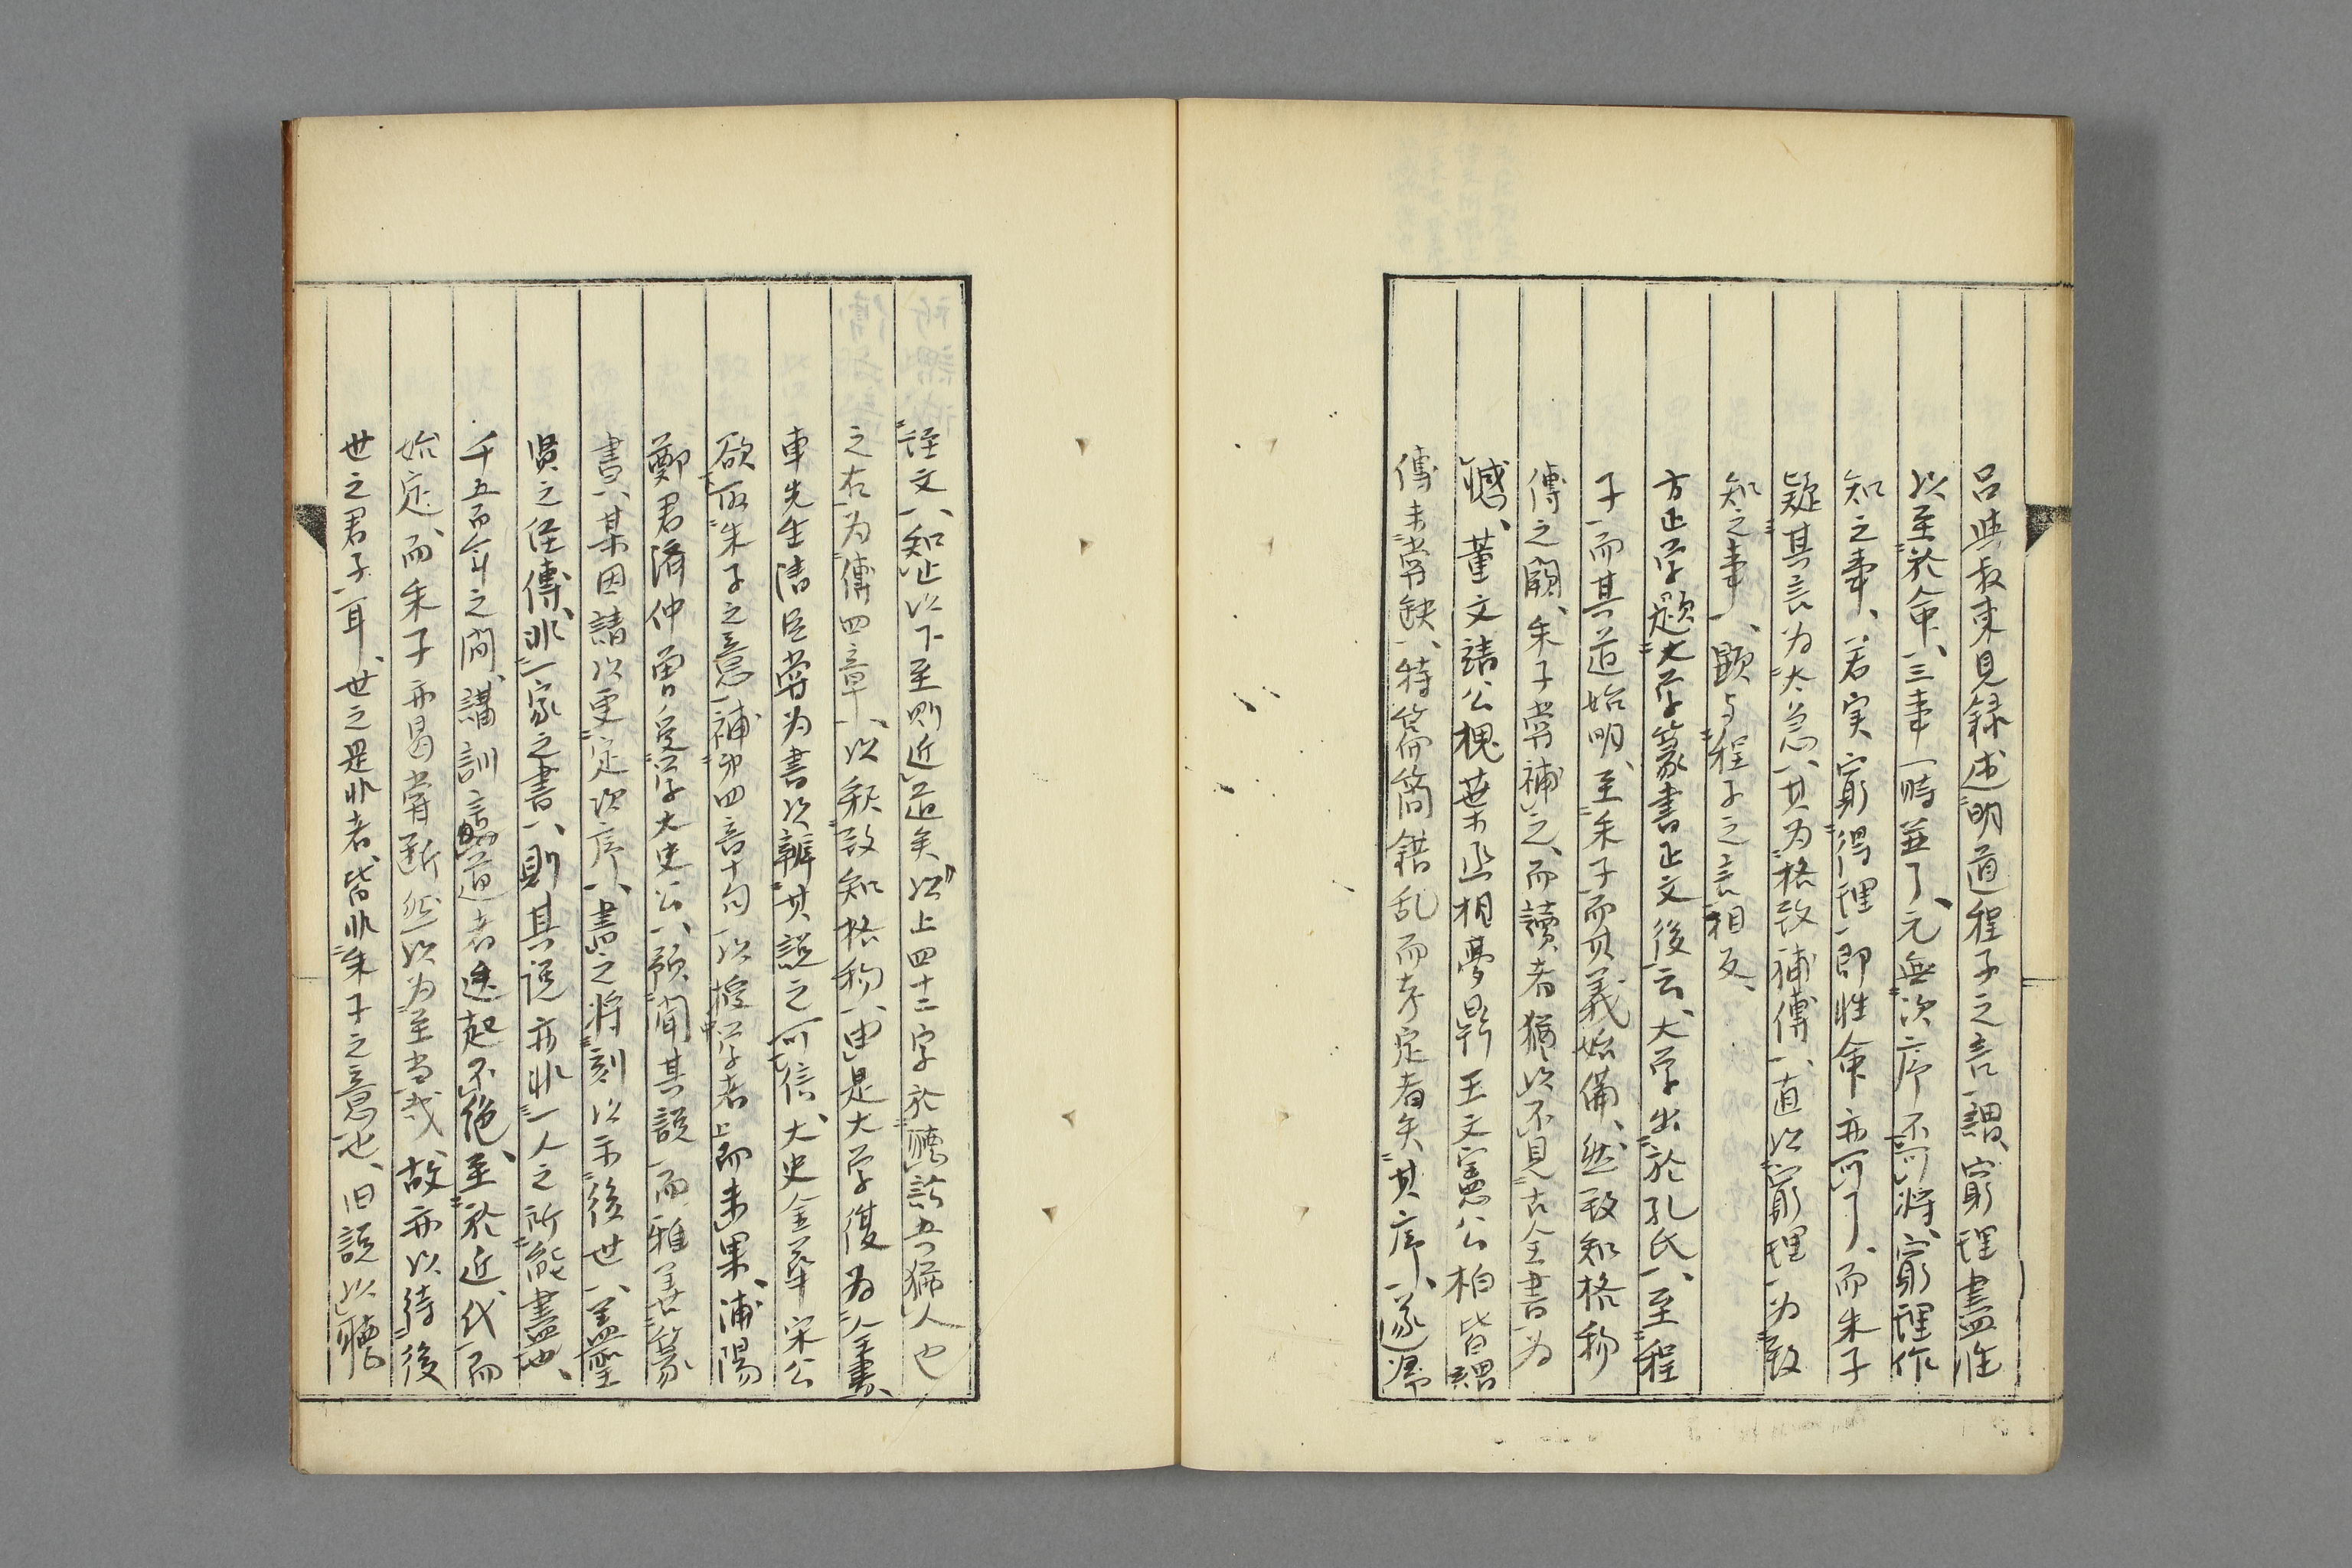 呂与叔東見録述明道程子之言謂窮理盡性
以至於命三事一時並了元無次序不可将窮理作
知之事若実窮得理即性命亦可了而朱子
疑其言為太急其為格致補傳直以窮理為致
知之事顕与程子之言相反
方正学題大学篆書正文後云大学出於孔氏至程
子而其道始明至朱子而其義始備然致知格物
傳之闕朱子嘗補之而讀者猶以不見古全書為
憾董文靖公槐葉丞相夢鼎王文憲公柏皆謂
傳未嘗缺特簡錯乱而考定者失其序遂帰
経文知止以下至則近道矣以上四十二字於聴訟吾猶人也
之右為傳四章以釈致知格物由是大学復為全書
車先生清臣嘗為書以辨其説之可信大史金華宋公
欲取朱子之意補第四章十句以授学者而未果浦陽
鄭君済仲曽受学大史公預聞其説而雅善篆
書某因請以更定次序書之将刻以示後世盖聖
賢之経傳非一家之書則其説亦非一人之所能盡也
千五百年之間講訓言道者迭起不絶至於近代而
始定而朱子亦曷嘗断然以為至当哉故亦以待後
世之君子耳世之是非者皆非朱子之意也旧説以聴